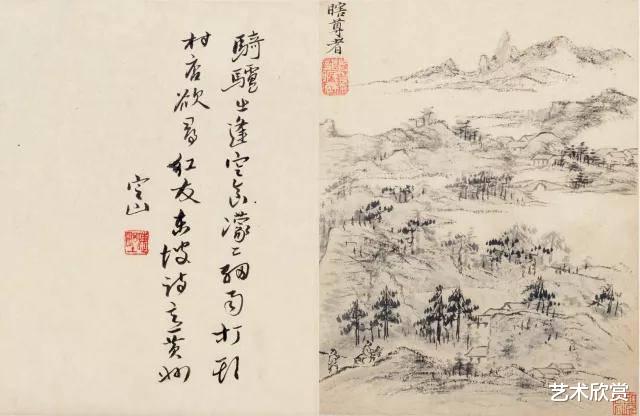 騎驢出逢寒食濛々細雨打頭
村店欲尋紅友東坡詩意黃州
定山
瞎尊者
艺术欣赏